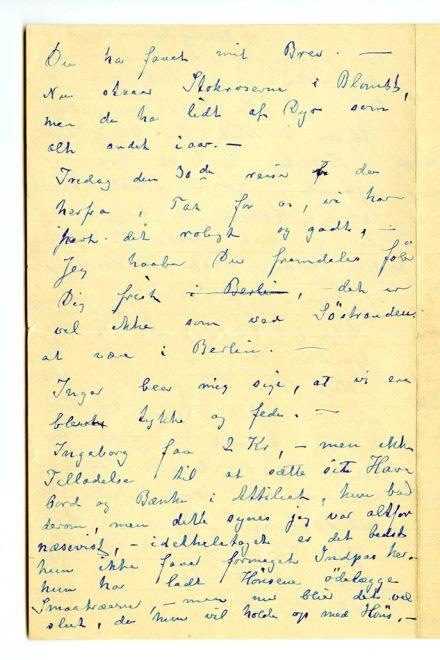 Du har faaet mit Brev. —
Nu staar Stokroserne i Blomst,
men de har lidt af Dyr som
alt andet i aar. —
Fredag den 30de rejser de
herfra, Tak for os, vi har
havt det roligt og godt, —
Jeg haaber Du fremdeles føler
Dig frisk i Berlin, – det er
vel ikke som ved Søstranden
at være i Berlin. —
Inger beer mig sige, at vi ere
blevne tykke og fede. —
Ingeborg faar 2 Kr, – men ikke
Tilladelse til at sætte sit Have
Bord og Bænke i Attiliet, hun bad
derom, men dette synes jeg var altfor
næsevist, – idetheletaget er det bedst
hun ikke faaer formeget Indpas her.
hun har ladt Hønsene ødelægge
Smaatræerne, – men nu bliver det vel
slut, da hun vil holde op med Høns, –